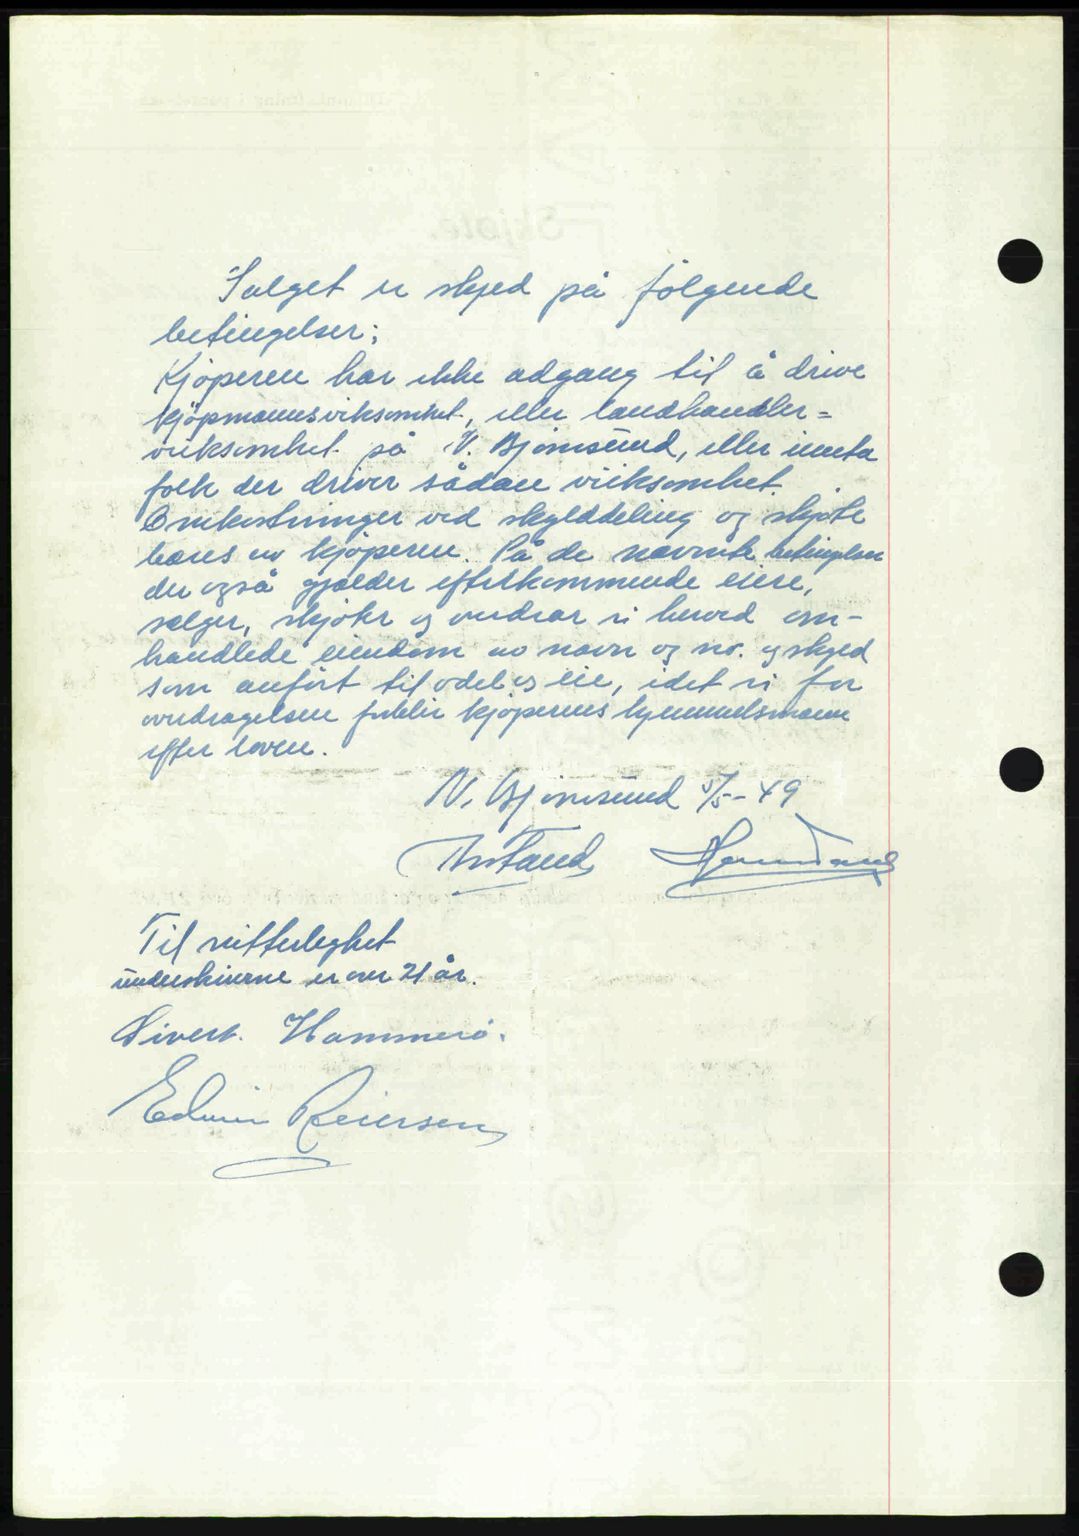 Salget er skjed på følgende
betingelser;
Kjøperen har ikke adgang til å drive
kjøpmannsvirksomhet, eller landhandler=
virksomhet på N. Bjørnsund, eller innta
folk der driver sådan virksomhet.
Omkostninger ved skylddeling og skjøte
bæres av kjøperen. På de nævnte betingelser
der også gjælder efterkommende eiere,
sælger, skjøter og overdrar vi herved om-
handlede eiendom av navn og nr. og skyld
som anført til odel og eie, idet vi for
overdragelsen forblir kjøperens hjemmelsmann
efter loven.
N. Bjørnsund 5/5-49
Til vitterlighet
underskriverne er over 21 år.
Sivert. Hammerø.
Edvin Reiersen
Skjøte.